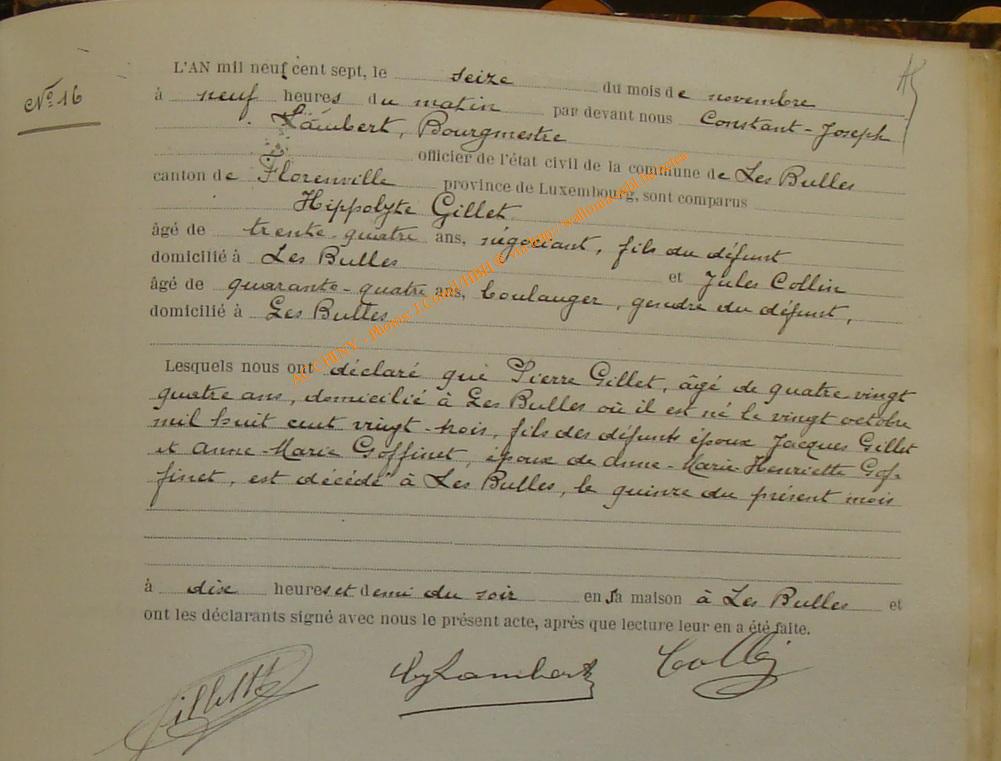 Nº 16
L'AN mil neuf cent sept, le seize du mois de novembre
à neuf heures du matin par devant nous Constant-Joseph
Lambert, Bourgmestre
officier de l'état civil de la commune de Les Bulles
canton de Florenville province de Luxembourg, sont comparus
Hippolyte Gillet
âgé de trente-quatre ans, négociant, fils du défunt
domicilié à Les Bulles et Jules Collin
âgé de quarante-quatre ans, boulanger, gendre du défunt,
domicilié à Les Bulles
Lesquels nous ont déclaré que Pierre Gillet, âgé de quatre-vingt
quatre ans, domicilié à Les Bulles où il est né le vingt octobre
mil huit cent vingt-trois, fils des défunts époux Jacques Gillet
et Anne-Marie Goffinet, époux de Anne-Marie-Henriette Gof-
finet, est décédé à Les Bulles, le quinze du présent mois
à dix heures et demi du soir en sa maison à Les Bulles et
ont les déclarants signé avec nous le présent acte, après que lecture leur en a été faite.
Gillet CJLambert Collin